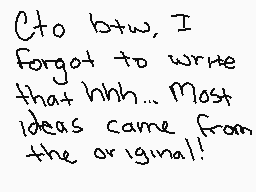 Cto btw, I
forgot to write
that hhh... Most
ideas came from
the original!